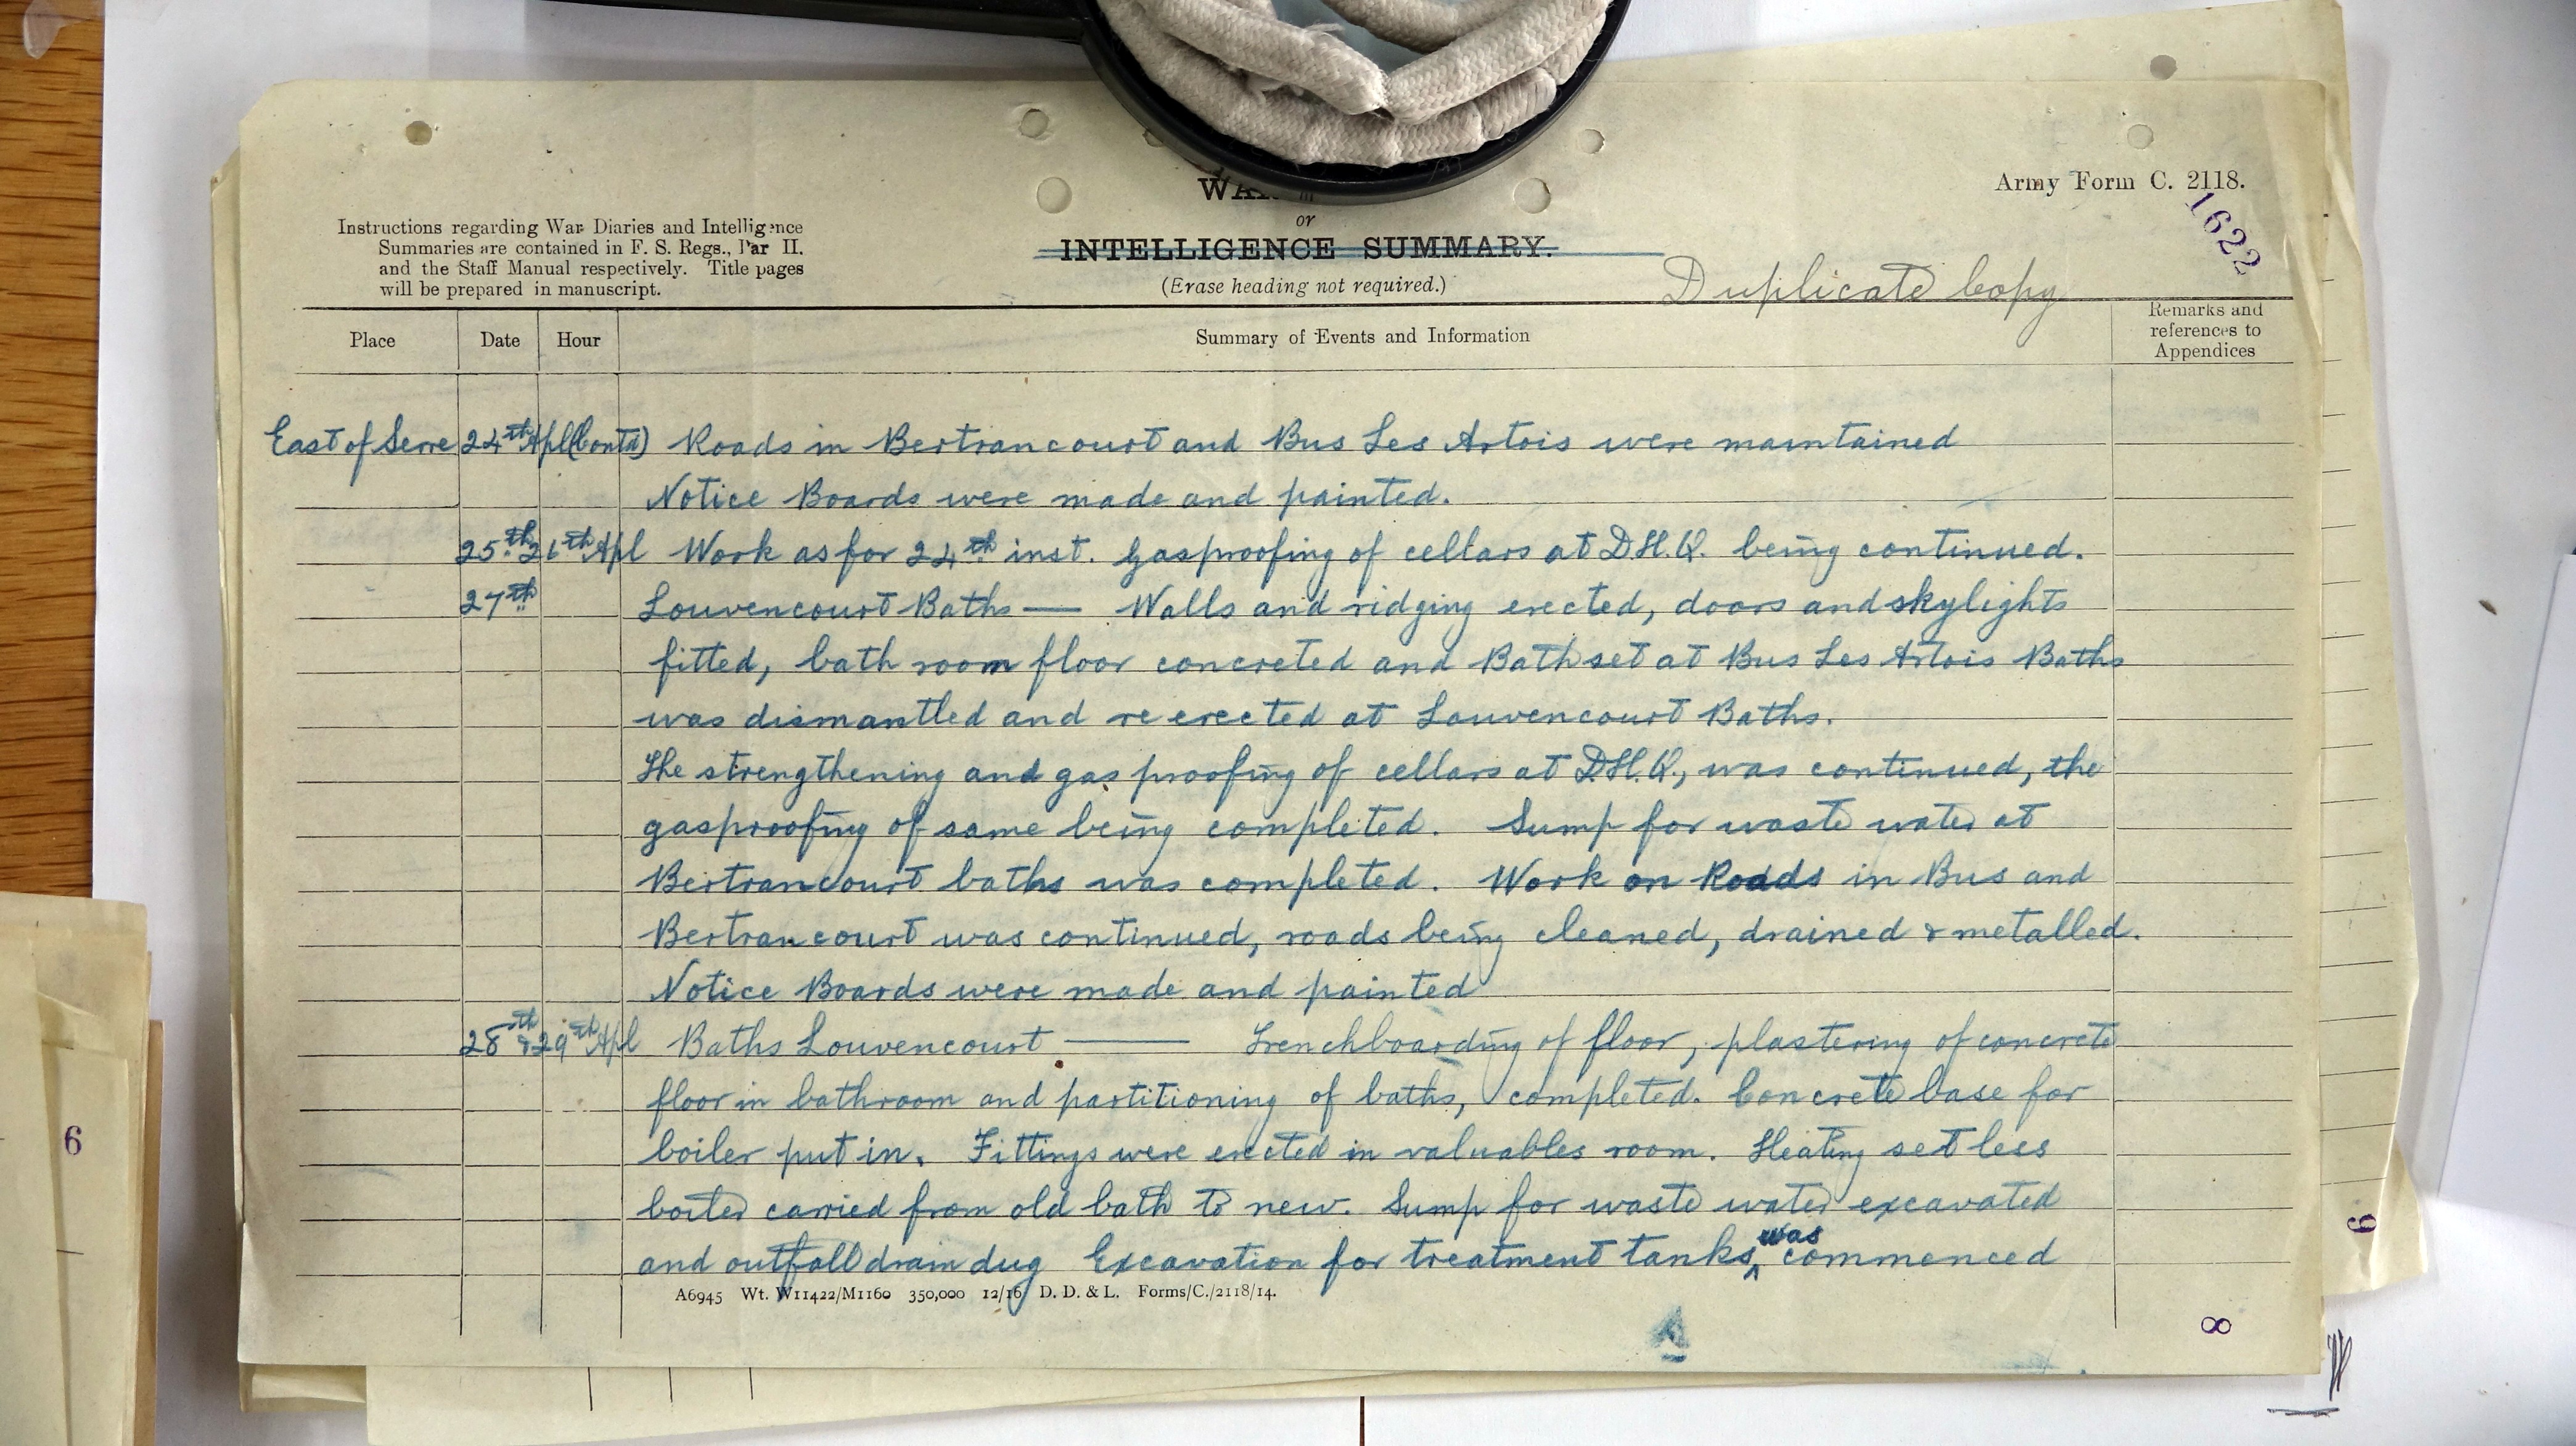 Army Form C. 2118.
1622
Instructions regarding War Diaries and Intelligence
Summaries are contained in F. S. Regs., Par II.
and the Staff Manual respectively. Title pages
will be prepared in manuscript.
or
INTELLIGENCE SUMMARY.
(Erase heading not required.)
Duplicate Copy
Place Date Hour Summary of Events and Information Remarks and references to Appendices
East of Serre 24th Apl (Contd) Roads in Bertrancourt and Bus Les Artois were maintained
Notice Boards were made and painted.
25th 26th Apl Work as for 24th inst. Gasproofing of cellars at D.H.Q. being continued.
27th Louvencourt Baths — Walls and ridging erected, doors and skylights
fitted, bath room floor concreted and Bath set at Bus Les Artois Baths
was dismantled and re erected at Louvencourt Baths.
The strengthening and gas proofing of cellars at D.H.Q., was continued, the
gasproofing of same being completed. Sump for waste water at
Bertrancourt baths was completed. Work on Roads in Bus and
Bertrancourt was continued, roads being cleaned, drained & metalled.
Notice Boards were made and painted
28th & 29th Apl Baths Louvencourt — Trenchboarding of floor, plastering of concrete
floor in bathroom and partitioning of baths, completed. Concrete base for
boiler put in. Fittings were erected in valuables room. Heating set less
boiler carried from old bath to new. Sump for waste water excavated
and outfall drain dug Excavation for treatment tanks was commenced
A6945 Wt. W11422/M1160 350,000 12/16 D. D. & L. Forms/C./2118/14.
8
6
6